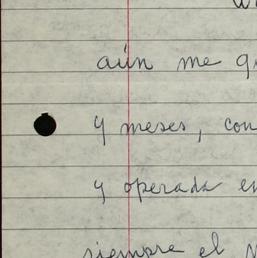 aún me
y meses, con
y operada en
siempre el